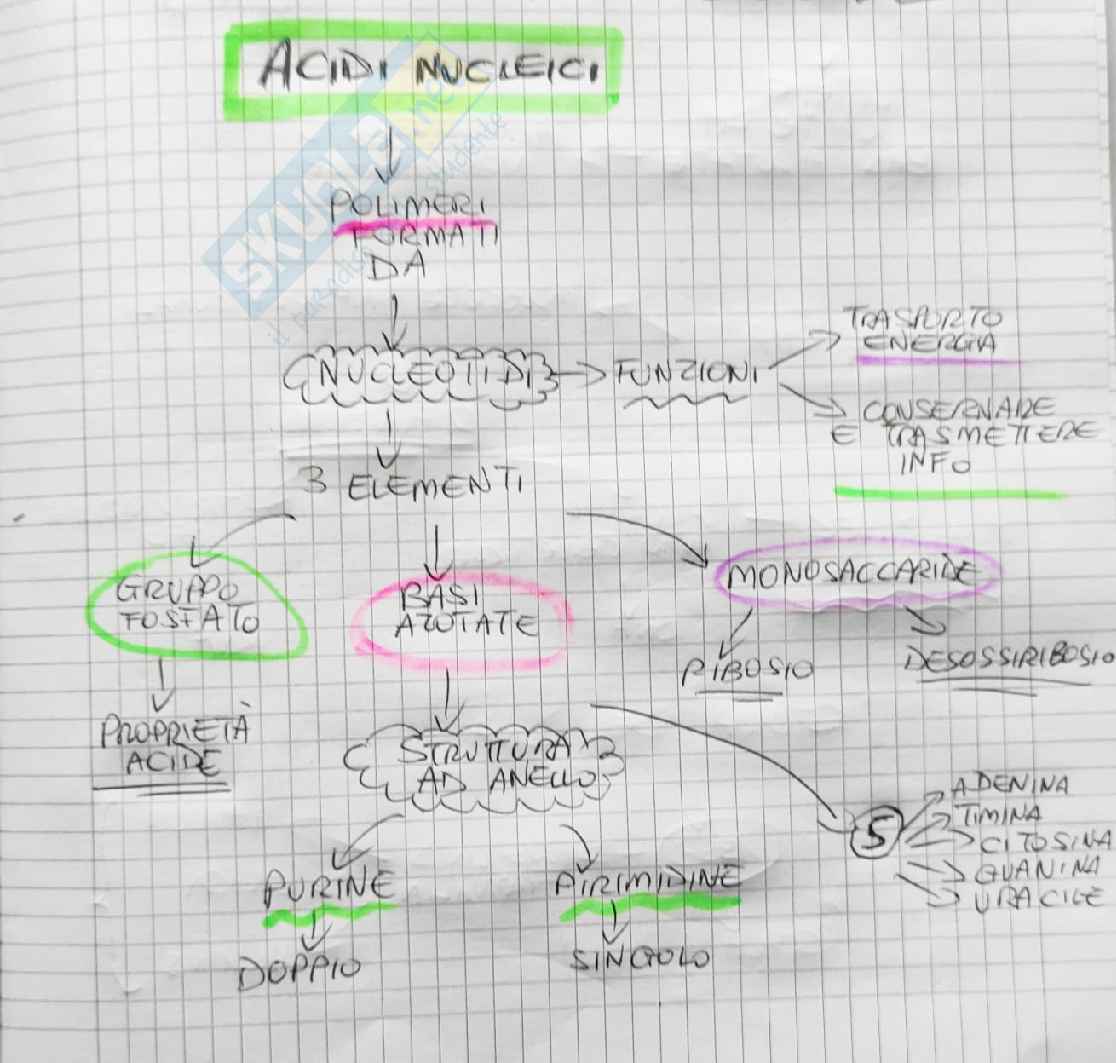 ACIDI NUCLEICI
SKUOLA.net
POLIMERI
FORMATI
DA
NUCLEOTIDI
FUNZIONI
TRASPORTO
ENERGIA
CONSERVARE
E TRASMETTERE
INFO
3 ELEMENTI
GRUPPO
FOSFATO
BASI
AZOTATE
MONOSACCARIDE
RIBOSIO
DESOSSIRIBOSIO
PROPRIETÀ
ACIDE
STRUTTURA
AD ANELLO
5
ADENINA
TIMINA
CITOSINA
GUANINA
URACILE
PURINE
PIRIMIDINE
DOPPIO
SINGOLO